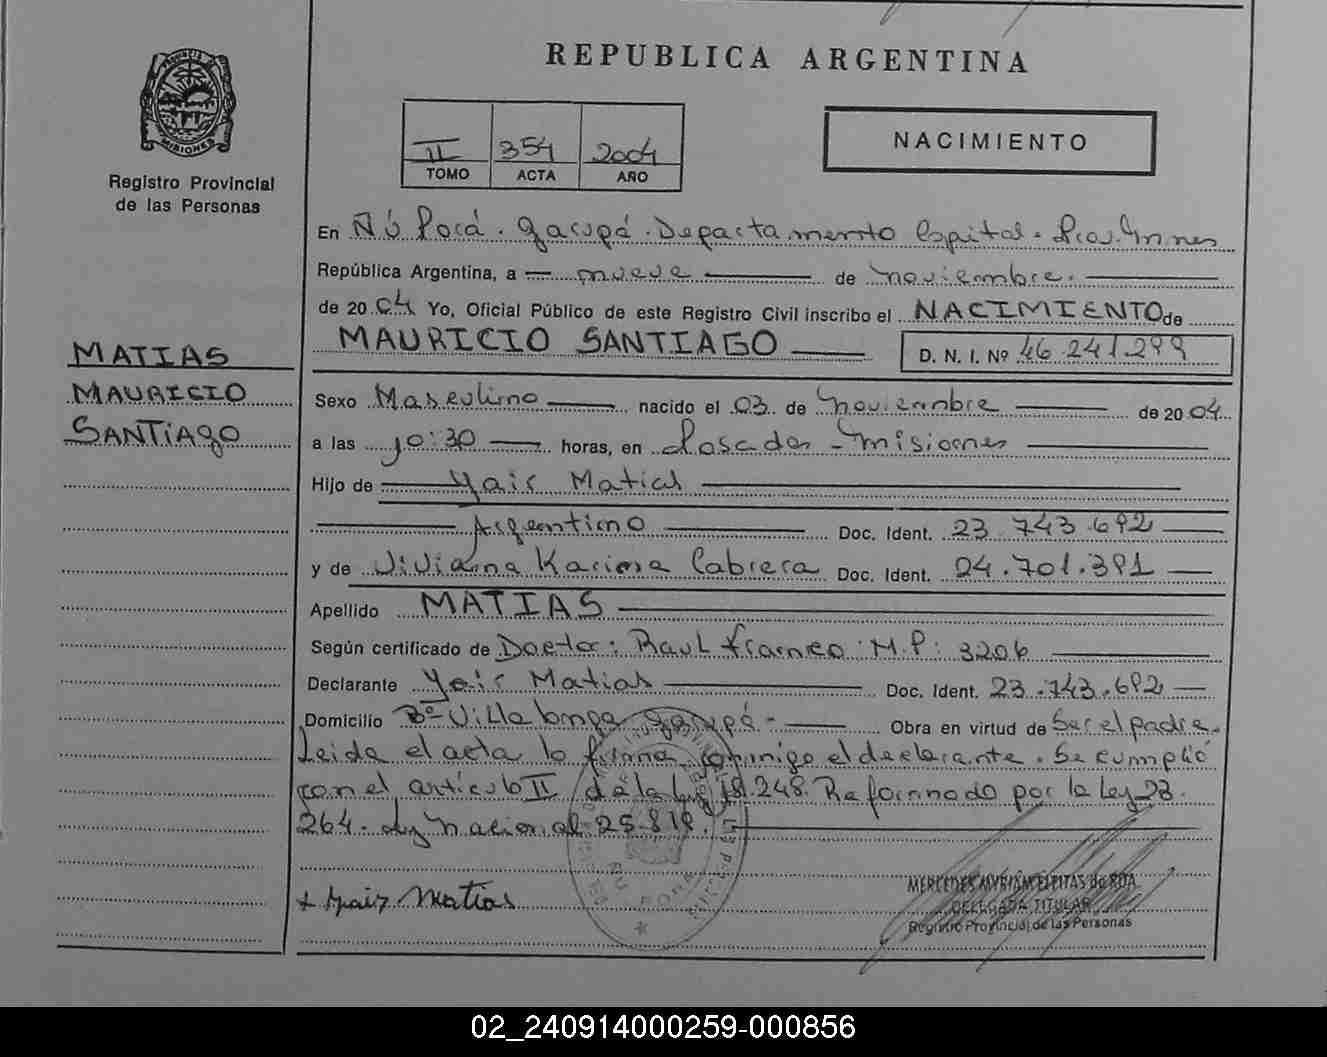 REPUBLICA ARGENTINA
PROVINCIA DE
MISIONES
Registro Provincial
de las Personas
II 354 2004
TOMO ACTA AÑO
NACIMIENTO
En Ñú Porá. Garupá. Departamento Capital. Prov. Mnes
República Argentina, a nueve de noviembre.
de 2004 Yo, Oficial Público de este Registro Civil inscribo el NACIMIENTO de
MAURICIO SANTIAGO D. N. I. Nº 46.241.299
MATIAS
MAURICIO
SANTIAGO
Sexo Masculino nacido el 03 de noviembre de 2004
a las 10:30 horas, en Posadas - Misiones
Hijo de Yair Matias
Argentino Doc. Ident. 23.743.692
y de Viviana Karina Cabrera Doc. Ident. 24.701.391
Apellido MATIAS
Según certificado de Doctor: Raul Franco M.P: 3206
Declarante Yair Matias Doc. Ident. 23.743.692
Domicilio Bº Villa Longa Garupá - Obra en virtud de Ser el padre.
Leida el acta la firma conmigo el declarante. Se cumplió
con el artículo II de la Ley 18.248. Reformado por la Ley 23.
264. Ley Nacional 25.818.
+ Yair Matias
MERCEDES MYRIAM FLEITAS de ROA
DELEGADA TITULAR
Registro Provincial de las Personas
02_240914000259-000856